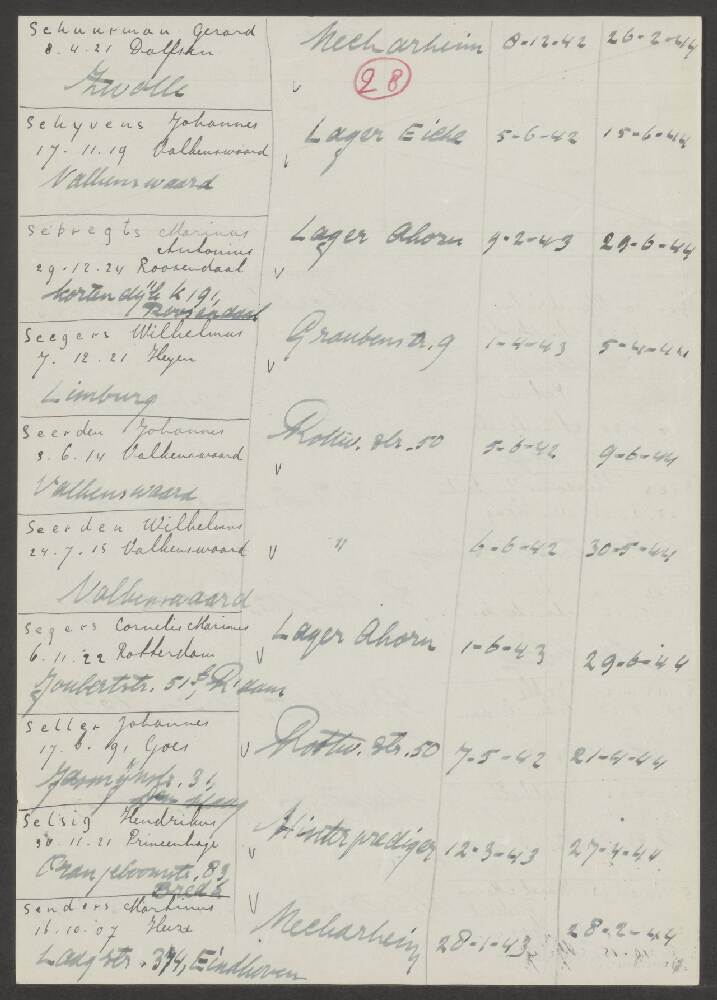 Schuurman Gerard
8.4.21 Dalfsen
Zwolle
Neckarheim 8-12-42 26-2-44
28
Schyvens Johannes
17.11.19 Valkenswaard
Valkenswaard
Lager Eiche 5-6-42 15-6-44
Sebregts Marinus
Antonius
29-12.24 Roosendaal
Kortendijk K 191,
Roosendaal
Lager Ahorn 9-2-43 29-6-44
Seegers Wilhelmus
7.12.21
Limburg
Graubenstr. 9 1-4-43 5-4-44
Seerden Johannes
3.6.14 Valkenswaard
Valkenswaard
Rottw. str. 50 5-6-42 9-6-44
Seerden Wilhelmus
24.7.15 Valkenswaard
Valkenswaard
" 6-6-42 30-5-44
Segers Cornelis Marinus
6.11.22 Rotterdam
Joubertstr. 51 R'dam
Lager Ahorn 1-6-43 29-6-44
Seller Johannes
17.6.91 Goes
31,
Den Haag
Rottw. Str. 50 7-5-42 21-4-44
Selsig Hendrikus
30.11.21 Princenhage
Oranjeboomstr. 83,
Breda
Hinterprediger 12-3-43 27-4-44
Senders Martinus
16.10.07 Heeze
Laagstr. 374, Eindhoven
Neckarheim 28-1-43 28-2-44